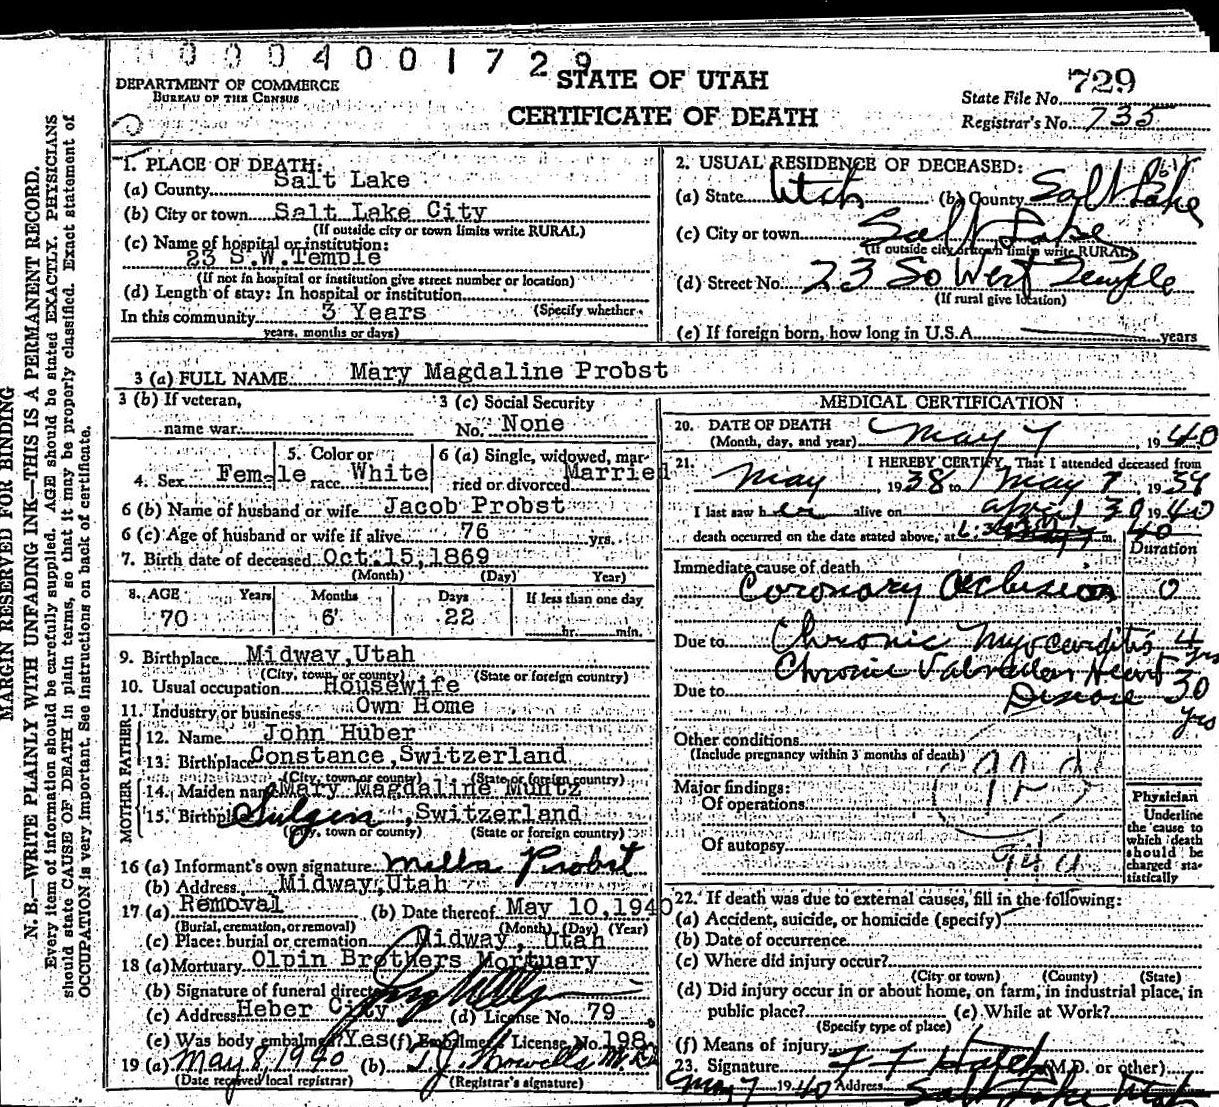 0004001729
DEPARTMENT OF COMMERCE
BUREAU OF THE CENSUS
STATE OF UTAH
CERTIFICATE OF DEATH
State File No. 729
Registrar's No. 735
MARGIN RESERVED FOR BINDING
N. B.—WRITE PLAINLY WITH UNFADING INK—THIS IS A PERMANENT RECORD.
Every item of information should be carefully supplied. AGE should be stated EXACTLY. PHYSICIANS
should state CAUSE OF DEATH in plain terms, so that it may be properly classified. Exact statement of
OCCUPATION is very important. See instructions on back of certificate.
1. PLACE OF DEATH:
(a) County Salt Lake
(b) City or town Salt Lake City
(If outside city or town limits write RURAL)
(c) Name of hospital or institution:
23 S.W.Temple
(If not in hospital or institution give street number or location)
(d) Length of stay: In hospital or institution
(Specify whether
In this community 3 Years
years, months or days)
2. USUAL RESIDENCE OF DECEASED:
(a) State Utah (b) County Salt Lake
(c) City or town Salt Lake
(If outside city or town limits write RURAL)
(d) Street No. 23 So West Temple
(If rural give location)
(e) If foreign born, how long in U.S.A. years
3 (a) FULL NAME Mary Magdaline Probst
3 (b) If veteran,
name war
3 (c) Social Security
No. None
4. Sex Female
5. Color or
race White
6 (a) Single, widowed, mar-
ried or divorced Married
6 (b) Name of husband or wife Jacob Probst
6 (c) Age of husband or wife if alive 76 yrs.
7. Birth date of deceased Oct.15,1869
(Month) (Day) Year)
8. AGE Years Months Days If less than one day
70 6 22 hr. min.
9. Birthplace Midway,Utah
(City, town, or county) (State or foreign country)
10. Usual occupation Housewife
11. Industry or business Own Home
FATHER
12. Name John Huber
13. Birthplace Constance,Switzerland
(City, town or county) (State or foreign country)
MOTHER
14. Maiden name Mary Magdaline Muntz
15. Birthpl Sulgen ,Switzerland
(City, town or county) (State or foreign country)
16 (a) Informant's own signature Probst
(b) Address Midway,Utah
17 (a) Removal (b) Date thereof May 10,1940
(Burial, cremation, or removal) (Month) (Day) (Year)
(c) Place: burial or cremation Midway, Utah
18 (a) Mortuary Olpin Brothers Mortuary
(b) Signature of funeral direct
(c) Address Heber City (d) License No. 79
(e) Was body embalmed Yes (f) Embalmer's License No. 198
19 (a) May 8, 1940 (b) T.J. Howells M.D.
(Date received local registrar) (Registrar's signature)
MEDICAL CERTIFICATION
20. DATE OF DEATH
(Month, day, and year) May 7, 1940
21. I HEREBY CERTIFY, That I attended deceased from
May, 1938 to May 7, 19
I last saw her alive on April 30 1940
death occurred on the date stated above, at m.
Duration
Immediate cause of death
Coronary Occlusion 0
Due to Chronic Myocarditis 4 yrs
Chronic Valvular Heart
Due to Disease 30 yrs
Other conditions
(Include pregnancy within 3 months of death)
Major findings:
Of operations
Of autopsy
Physician
Underline
the cause to
which death
should be
charged sta-
tistically
22. If death was due to external causes, fill in the following:
(a) Accident, suicide, or homicide (specify)
(b) Date of occurrence
(c) Where did injury occur?
(City or town) (County) (State)
(d) Did injury occur in or about home, on farm, in industrial place, in
public place? (e) While at Work?
(Specify type of place)
(f) Means of injury
23. Signature F F Hatch (M.D. or other)
May 7 1940 Address Salt Lake Utah